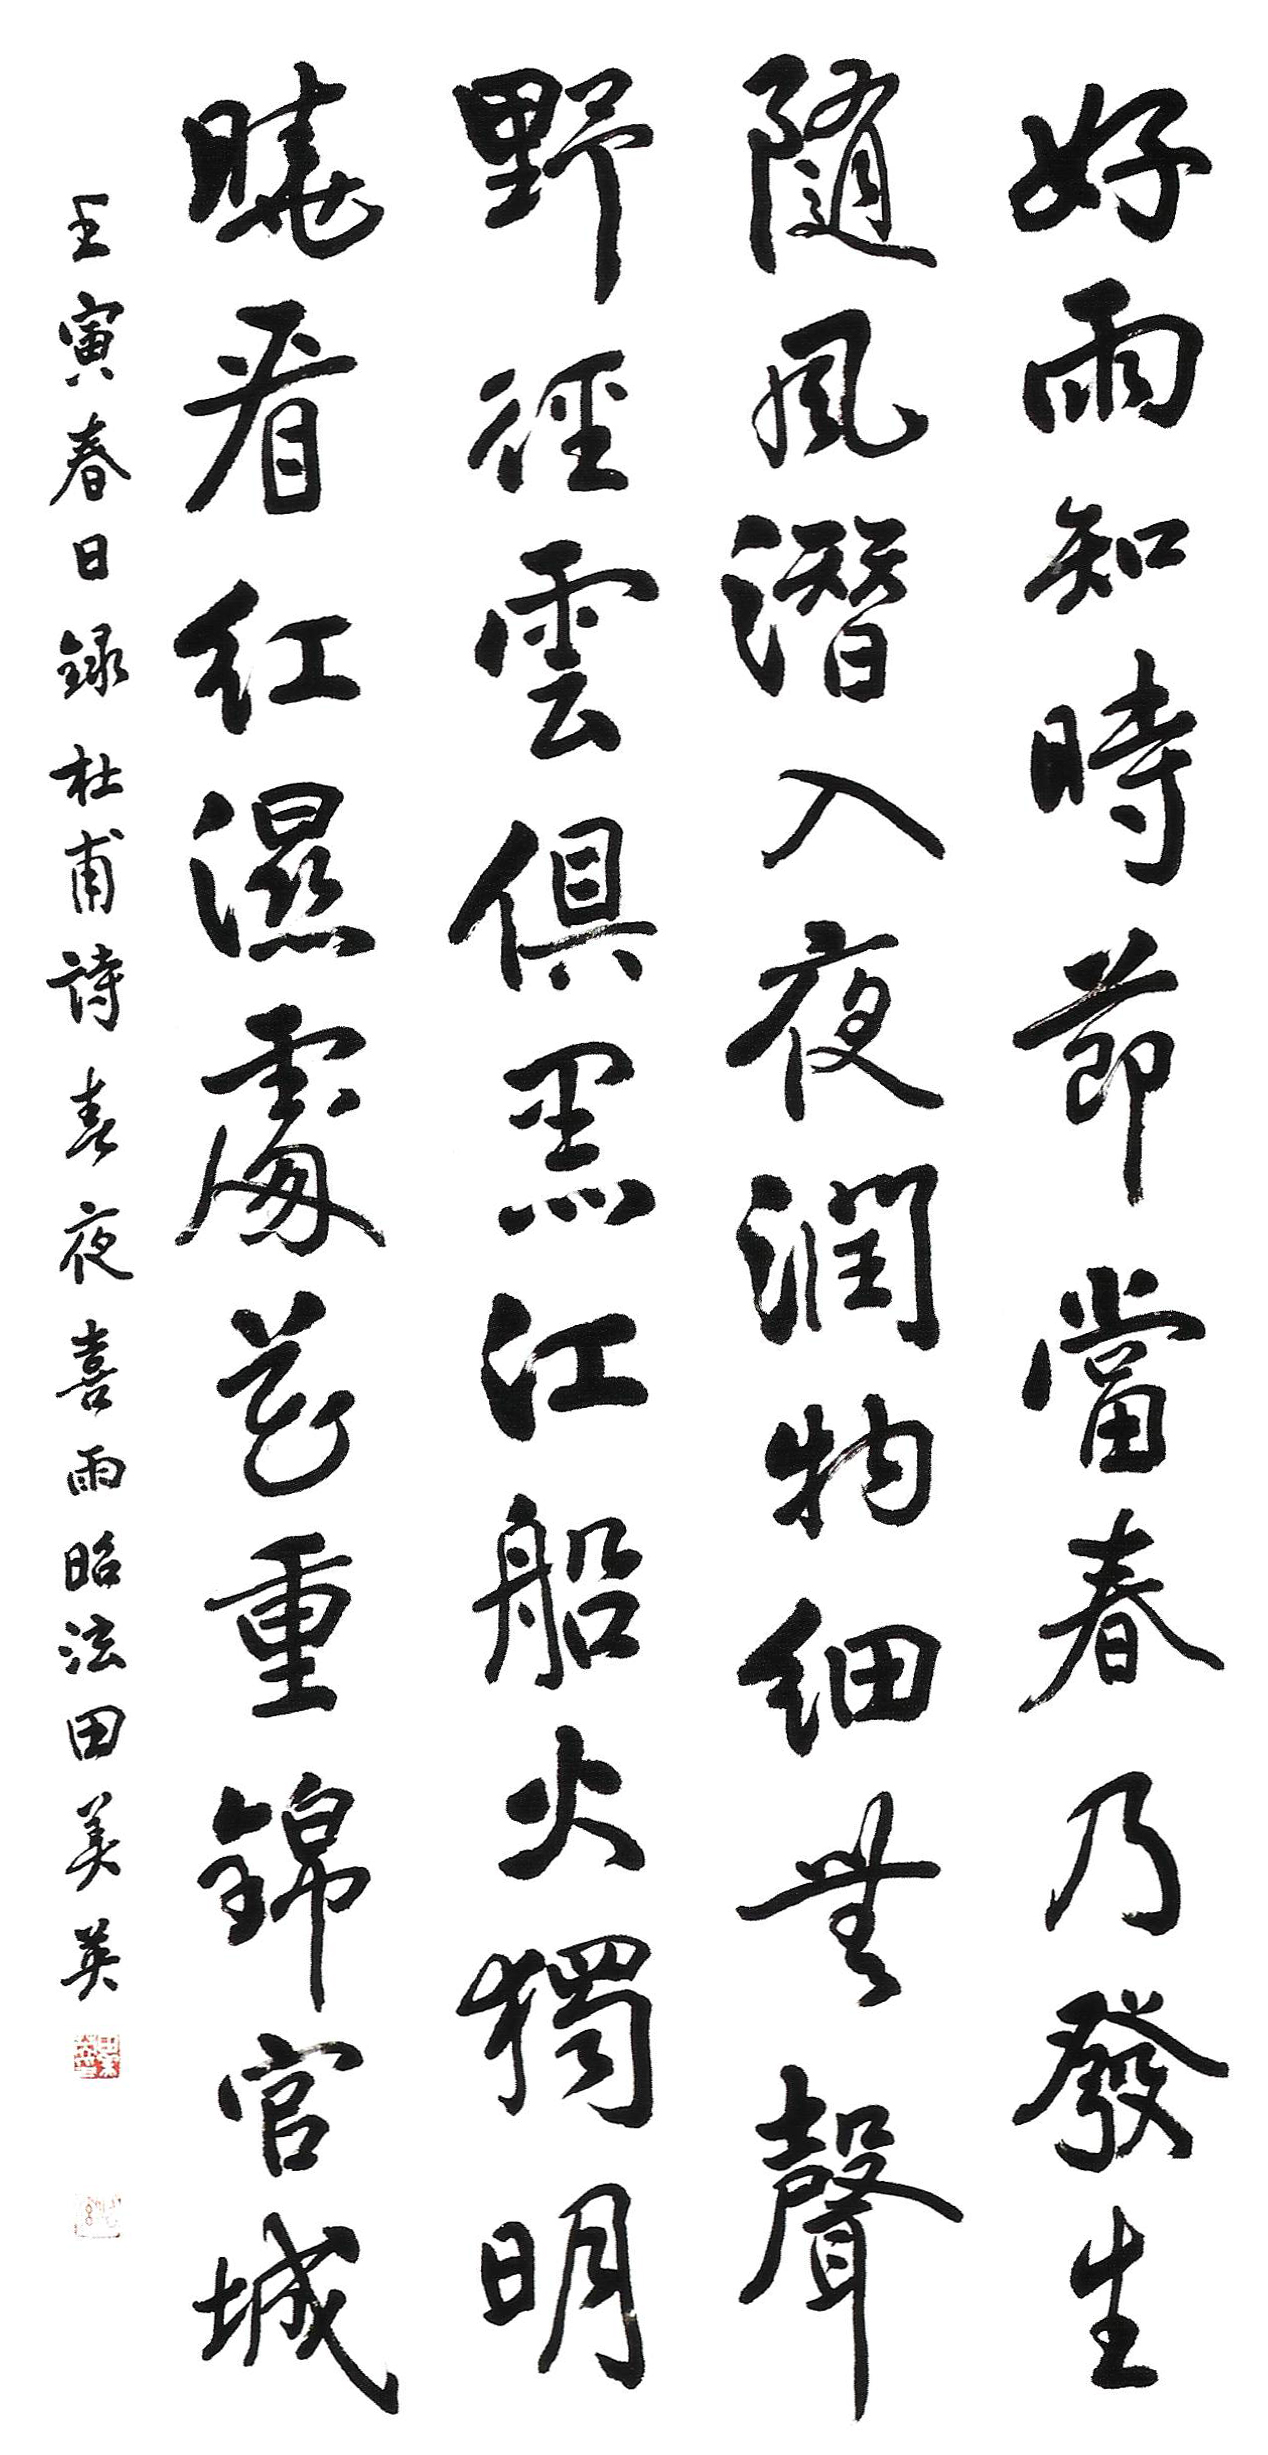 好雨知時節當春乃發生
隨風潛入夜潤物細無聲
野徑雲俱黑江船火獨明
曉看紅濕處花重錦官城
壬寅春日録杜甫詩春夜喜雨昭泫田美英